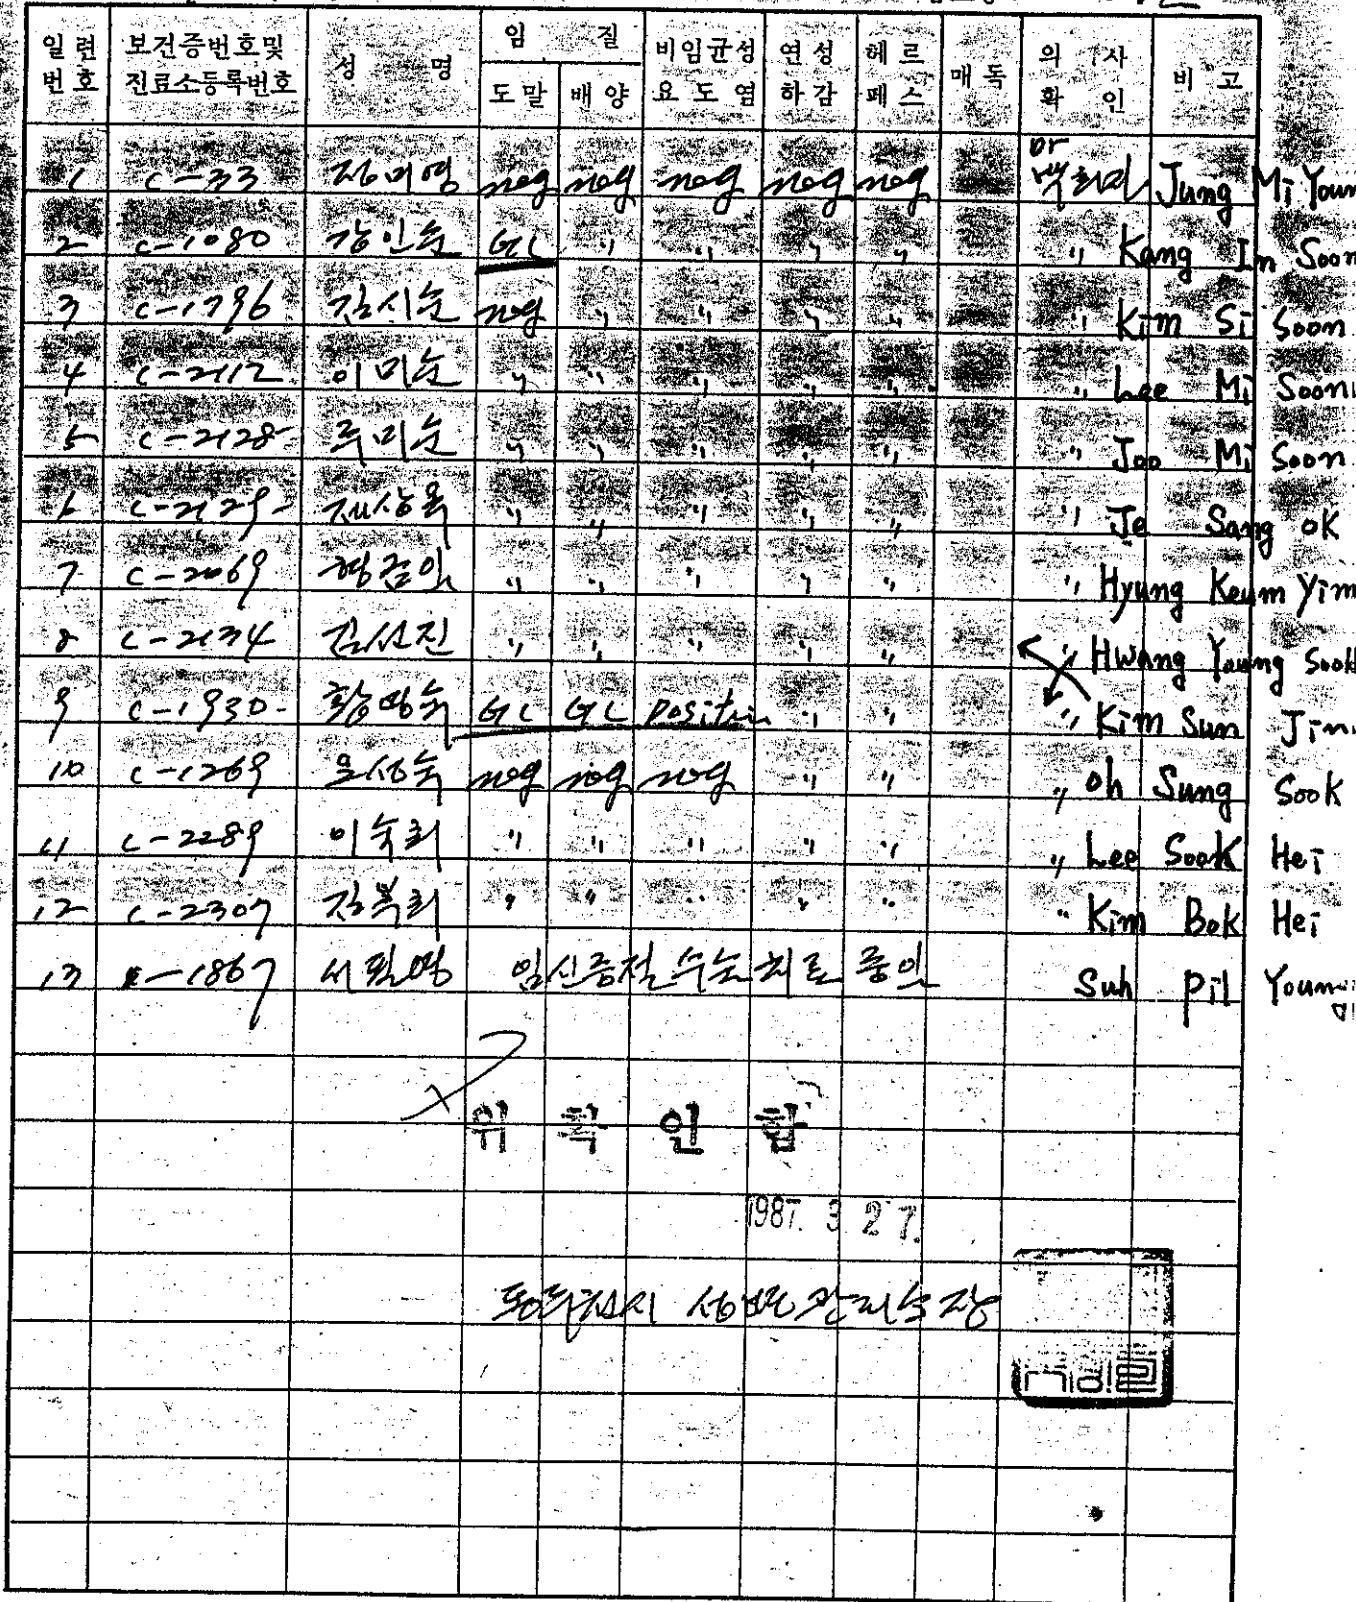 일련번호 보건증번호및진료소등록번호 성명 임질 도말 배양 비임균성요도염 연성하감 헤르페스 매독 의사확인 비고
1 C-33 정미영 neg neg neg neg neg or 백희 Jung Mi Youn
2 C-1080 강인순 GC " " " " " Kang In Soon
3 C-1796 김시순 neg " " " " " Kim Si Soon
4 C-2112 이미순 " " " " " " Lee Mi Soon
5 C-2128 주미순 " " " " " " Joo Mi Soon
6 C-2129 제상옥 " " " " " " Je Sang ok
7 C-2069 형금임 " " " " " " Hyung Keum Yim
8 C-2134 김선진 " " " " " " Hwang Young Sook
9 C-1930 황영숙 GC GC positive " " " Kim Sun Jin
10 C-1269 오성숙 neg neg neg " " " oh Sung Sook
11 C-2289 이숙희 " " " " " " Lee Sook Hei
12 C-2307 김복희 " " " " " " Kim Bok Hei
13 -1867 서필영 임신중절 수술 치료 중임 Suh Pil Young
위 확 인 함
1987. 3 27.
동두천시 성병관리소장